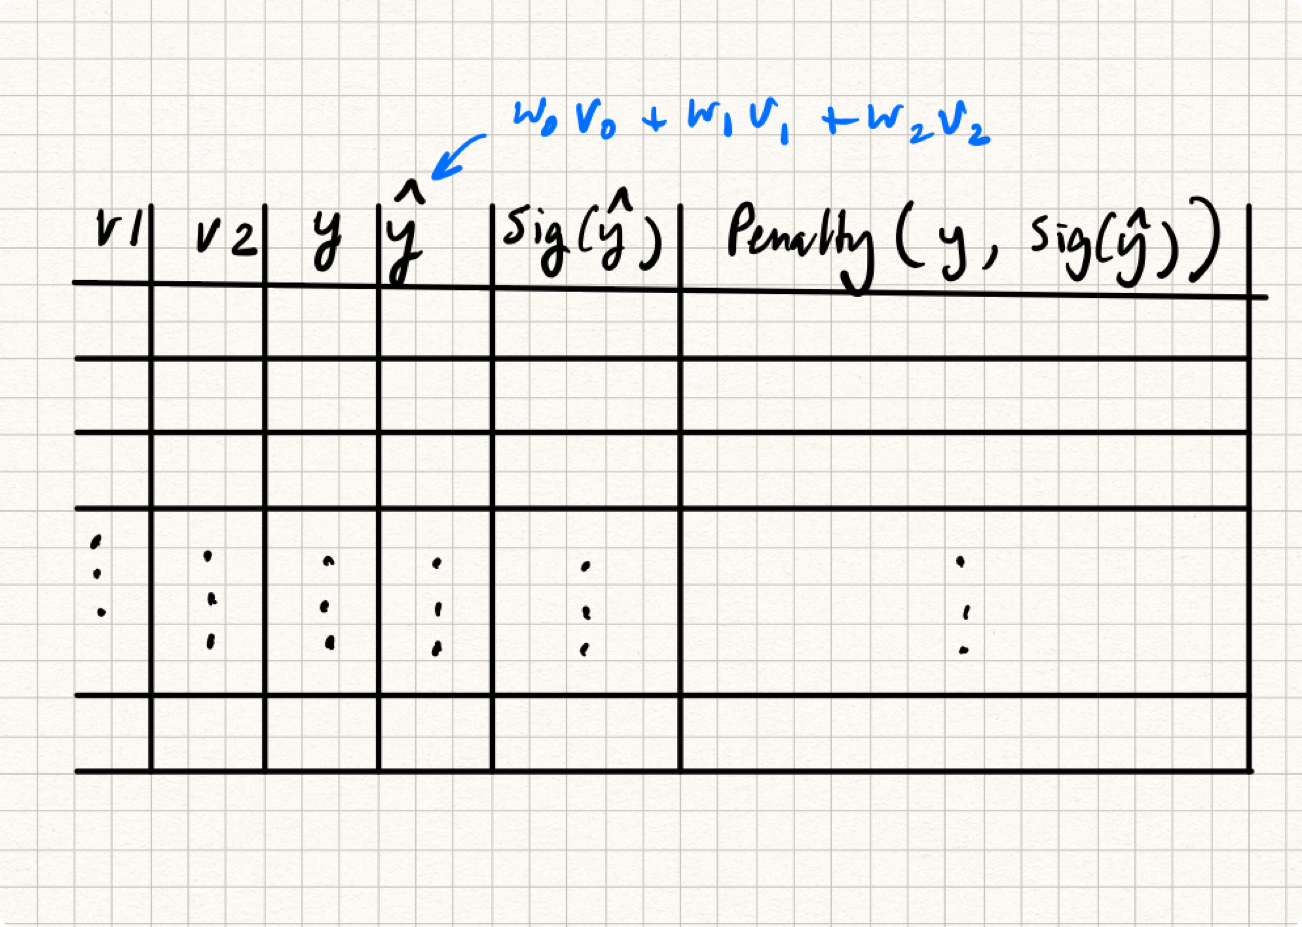 w₀ v₀ + w₁ v₁ + w₂ v₂
v1 v2 y ŷ sig(ŷ) Penalty(y, sig(ŷ))